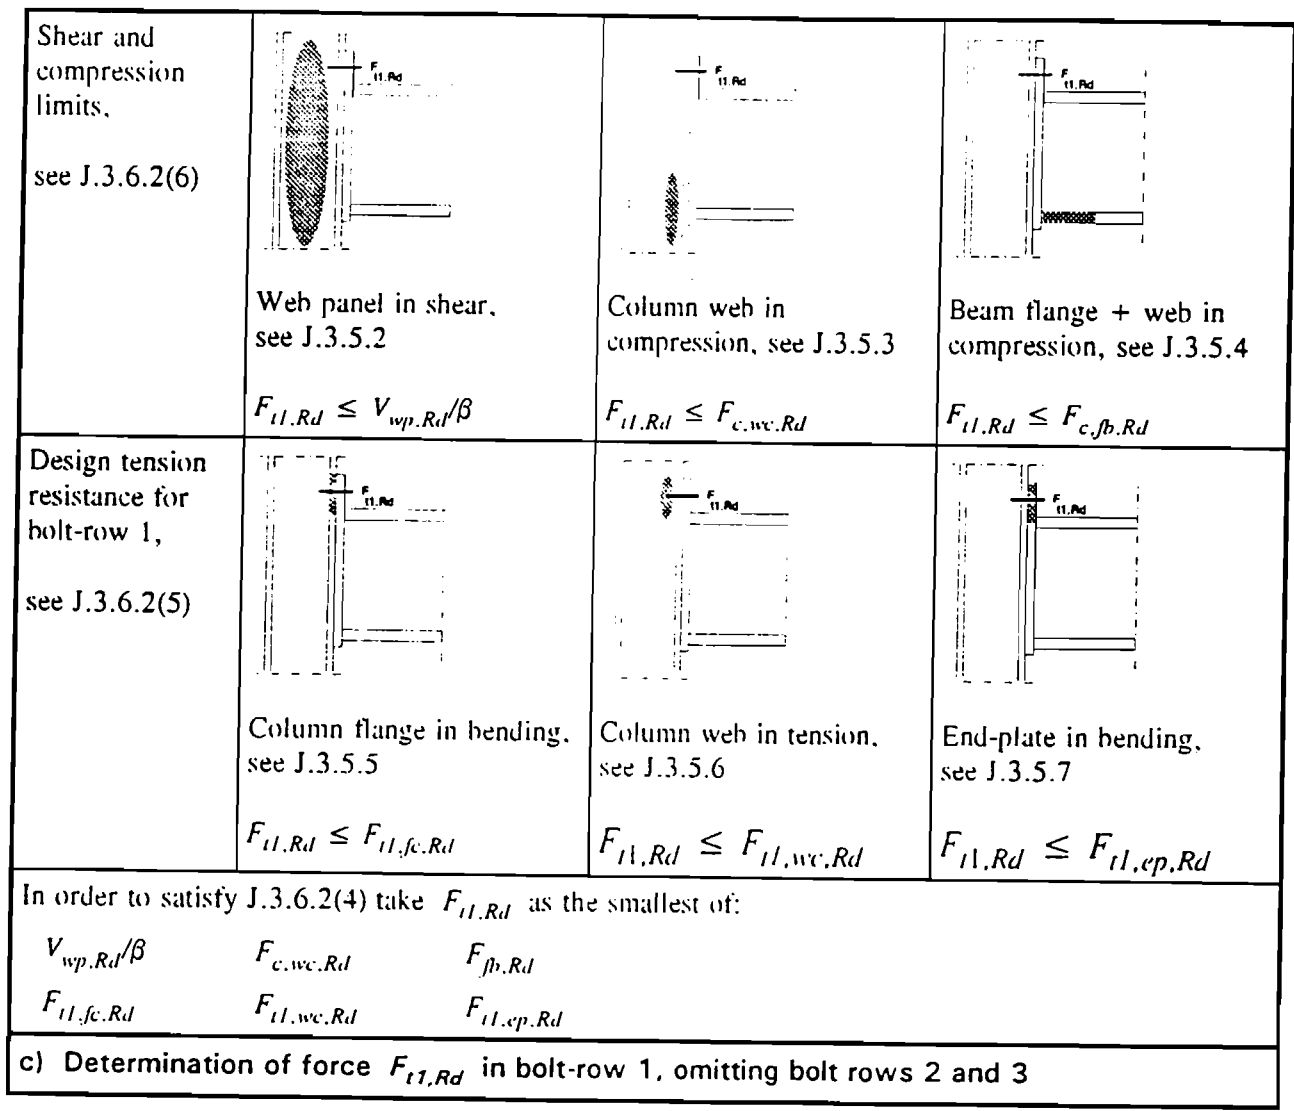 Shear and
compression
limits,
see J.3.6.2(6)
F t1.Rd
Web panel in shear,
see J.3.5.2
F_{t1.Rd} ≤ V_{wp.Rd}/β
F t1.Rd
Column web in
compression, see J.3.5.3
F_{t1.Rd} ≤ F_{c.wc.Rd}
F t1.Rd
Beam flange + web in
compression, see J.3.5.4
F_{t1.Rd} ≤ F_{c.fb.Rd}
Design tension
resistance for
bolt-row 1,
see J.3.6.2(5)
F t1.Rd
Column flange in bending,
see J.3.5.5
F_{t1.Rd} ≤ F_{t1.fc.Rd}
F t1.Rd
Column web in tension,
see J.3.5.6
F_{t1.Rd} ≤ F_{t1.wc.Rd}
F t1.Rd
End-plate in bending,
see J.3.5.7
F_{t1.Rd} ≤ F_{t1.ep.Rd}
In order to satisfy J.3.6.2(4) take F_{t1.Rd} as the smallest of:
V_{wp.Rd}/β F_{c.wc.Rd} F_{fb.Rd}
F_{t1.fc.Rd} F_{t1.wc.Rd} F_{t1.ep.Rd}
c) Determination of force F_{t1.Rd} in bolt-row 1, omitting bolt rows 2 and 3